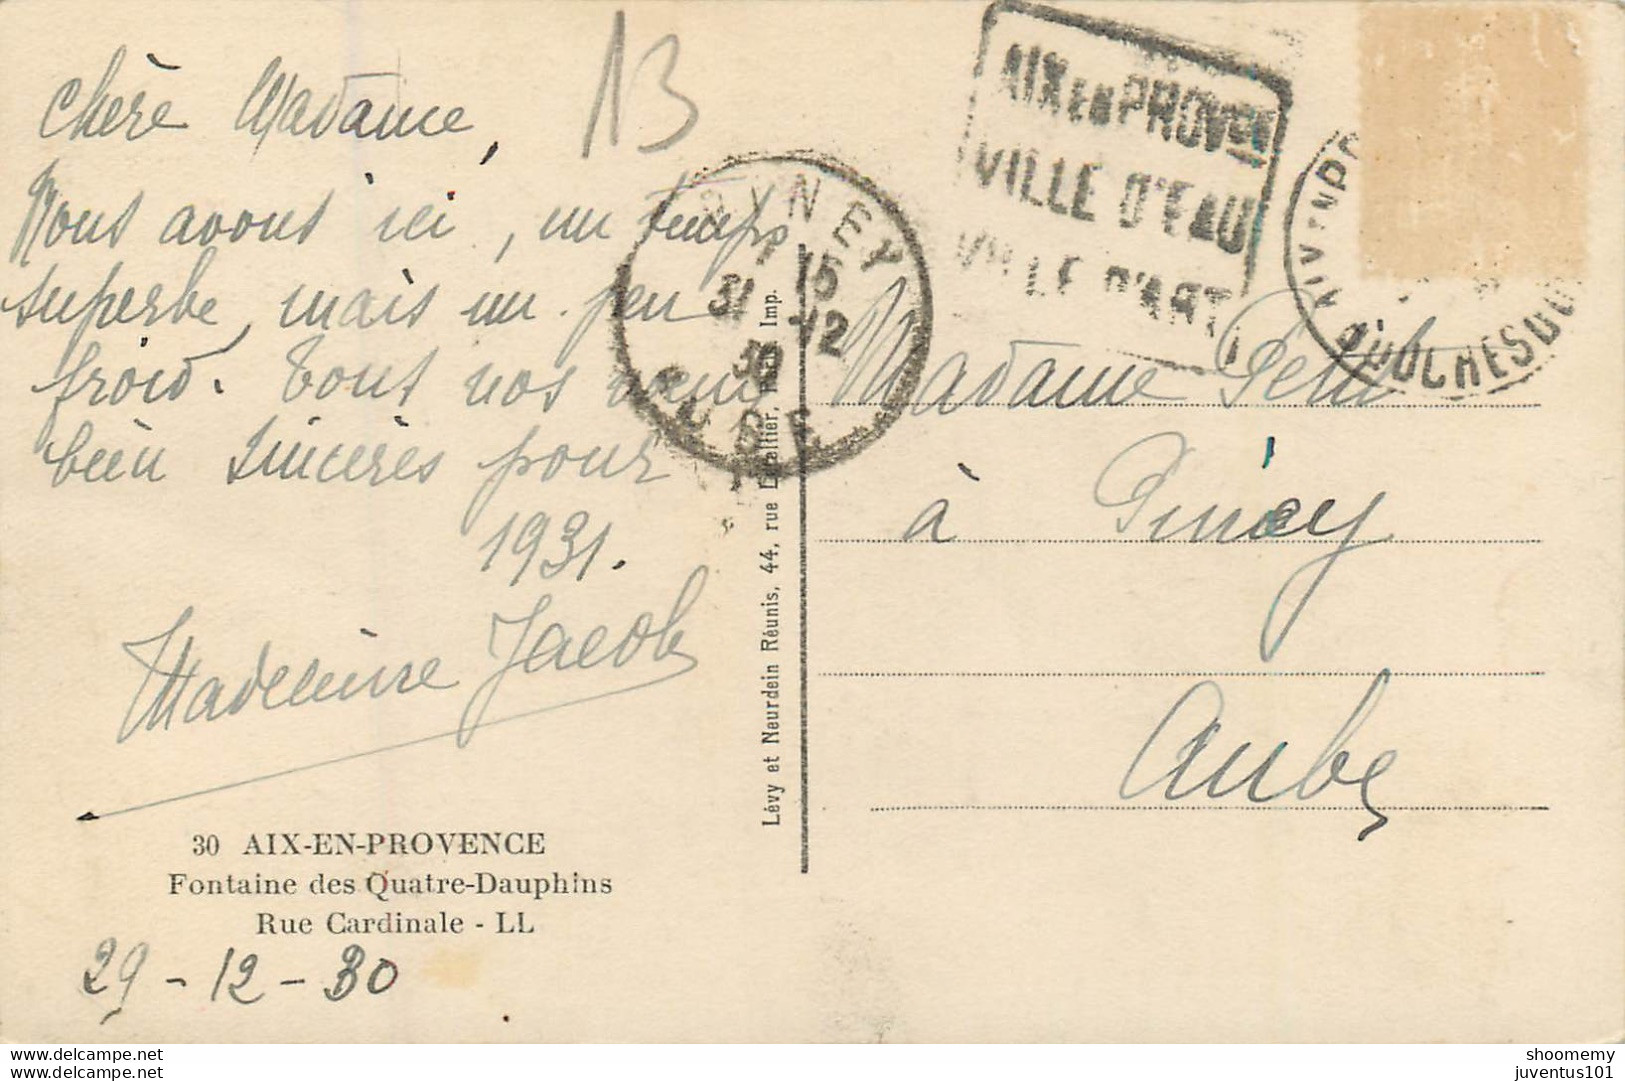 13
Chère Madame,
Nous avons ici, un temps
superbe, mais un peu
froid. Tout nos vœux
bien sincères pour
1931.
Madeleine Jacob
30 AIX-EN-PROVENCE
Fontaine des Quatre-Dauphins
Rue Cardinale - LL
29-12-30
Lévy et Neurdein Réunis, 44, rue Letellier, Imp.
PINEY
15
31 -12
30
AUBE
AIX EN PROVCE
VILLE D'EAU
VILLE D'ART
AIX EN PR
BOUCHES DU
Madame Petit
à Piney
Aube
delcampe.net
juventus101
shoomemy
juventus101